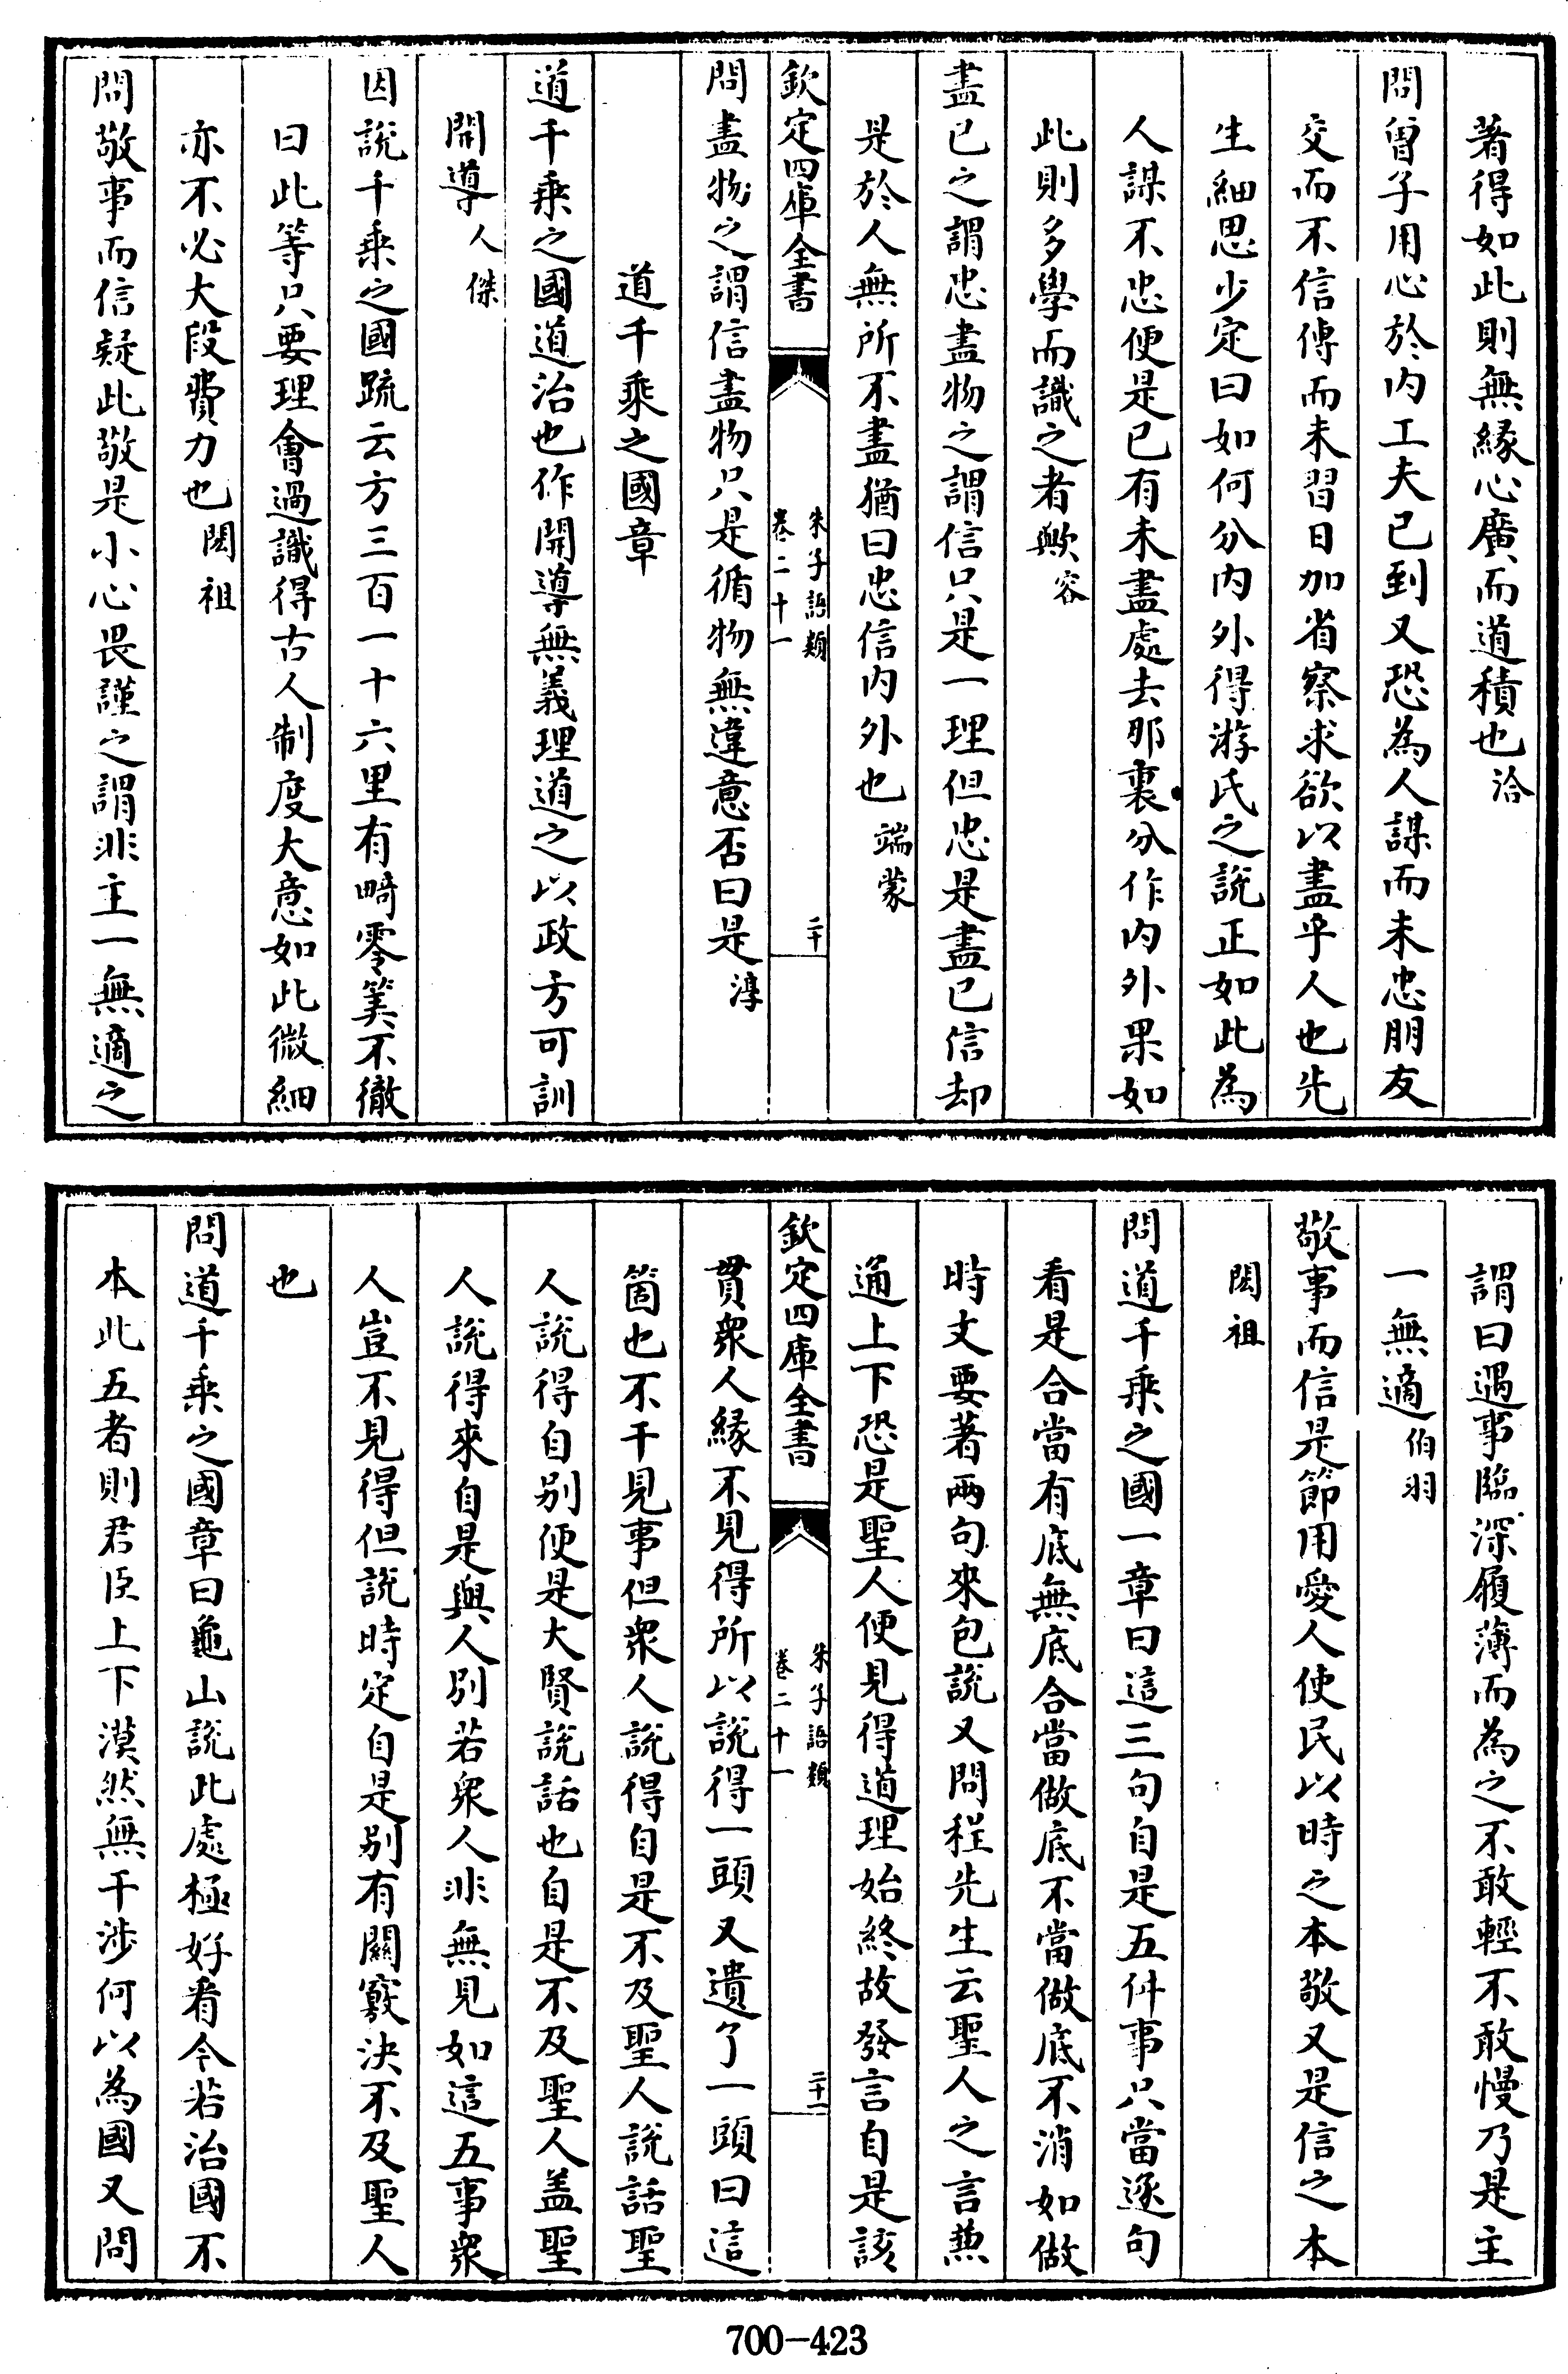 著得如此則無緣心廣而道積也洽
問曾子用心於内工夫已到又恐為人謀而未忠朋友
交而不信傳而未習日加省察求欲以盡乎人也先
生細思少定曰如何分内外得游氏之說正如此為
人謀不忠便是已有未盡處去那裏分作内外果如
此則多學而識之者歟容
盡已之謂忠盡物之謂信只是一理但忠是盡已信却
是於人無所不盡猶曰忠信内外也端蒙
欽定四庫全書
朱子語類
卷二十一
二十
問盡物之謂信盡物只是循物無違意否曰是淳
道千乘之國章
道千乘之國道治也作開導無義理道之以政方可訓
開導人傑
因說千乘之國疏云方三百一十六里有畸零筭不徹
曰此等只要理會過識得古人制度大意如此微細
亦不必大段費力也閎祖
問敬事而信疑此敬是小心畏謹之謂非主一無適之
謂曰遇事臨深履薄而為之不敢輕不敢慢乃是主
一無適伯羽
敬事而信是節用愛人使民以時之本敬又是信之本
閎祖
問道千乘之國一章曰這三句自是五件事只當逐句
看是合當有底無底合當做底不當做底不消如做
時文要著兩句來包說又問程先生云聖人之言兼
通上下恐是聖人便見得道理始終故發言自是該
欽定四庫全書
朱子語類
卷二十一
二十一
貫衆人緣不見得所以說得一頭又遺了一頭曰這
箇也不干見事但衆人說得自是不及聖人說話聖
人說得自别便是大賢說話也自是不及聖人盖聖
人說得來自是與人别若衆人非無見如這五事衆
人豈不見得但說時定自是别有關竅决不及聖人
也
問道千乘之國章曰龜山說此處極好看今若治國不
本此五者則君臣上下漠然無干涉何以為國又問
700-423